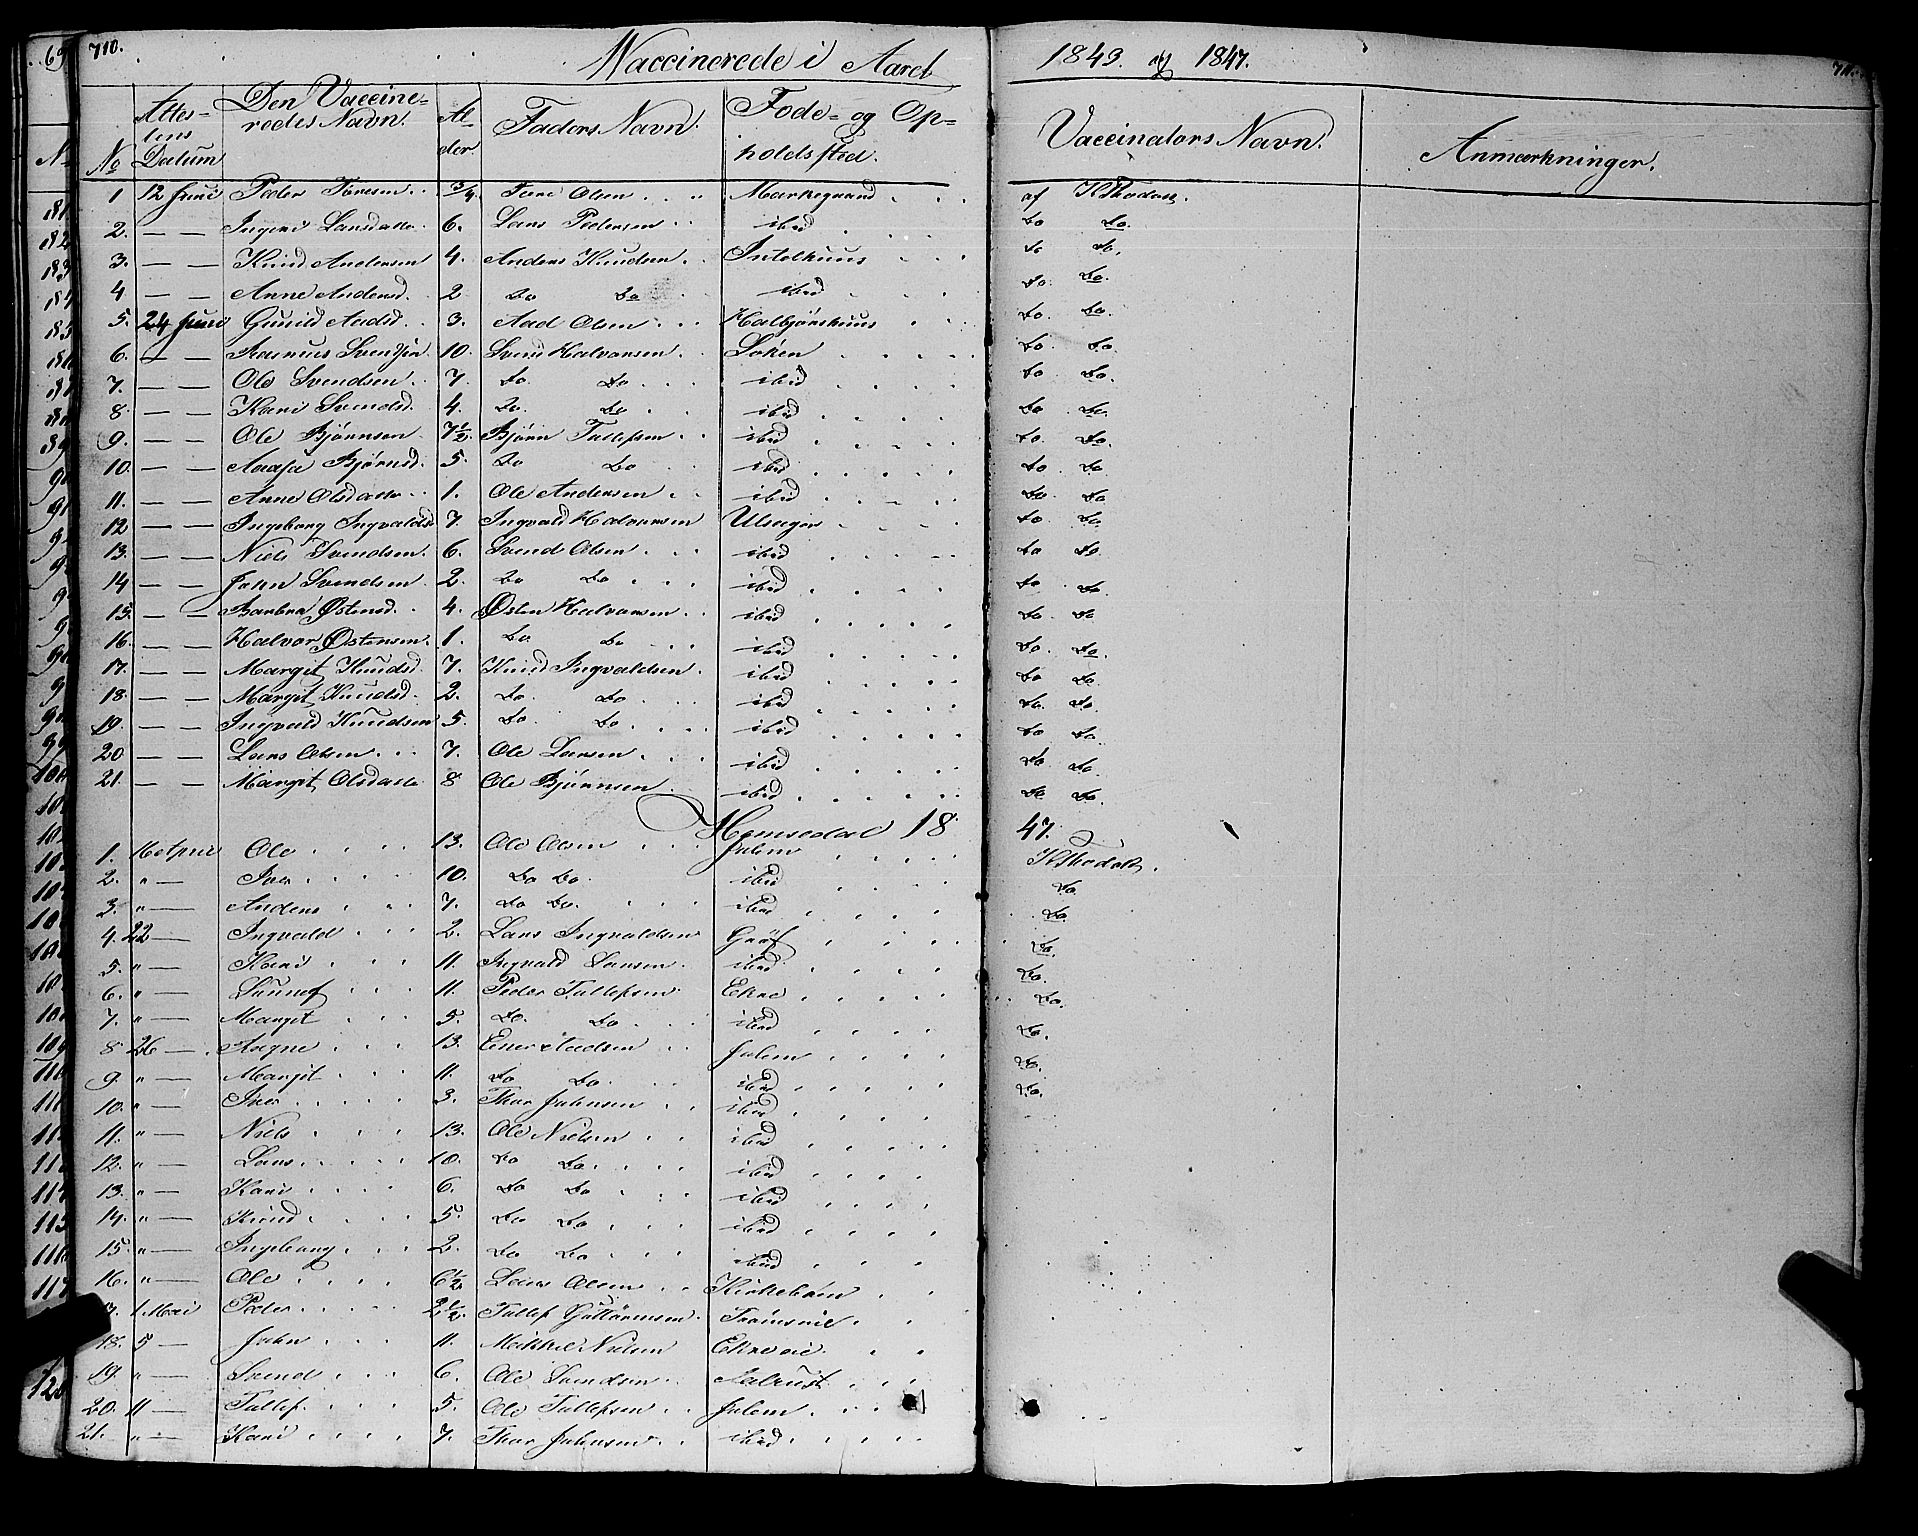 710.
Waccinerede i Aaret 1843. og 1847.
Attes-
tens
Datum
Den Vaccine-
redes Navn.
Al-
der.
Faders Navn.
Føde- og Op-
holdssted.
Vaccinators Navn.
Anmærkninger.
No
1 12 Juni Peder Toresen 3/4. Tore Olsen Markegaard af
2. — — Larsdatter 6. Lars Pedersen ibid Do Do.
3. — — Knud Andersen 4. Anders Knudsen Do Do.
4 — — Anne Andersd. 2 Do Do ibid Do. Do.
5. 24 Juni Gunild Aadsd. 3. Aad Olsen Do. Do.
6. — — Rasmus 10. Svend Halvorsen Løken Do Do.
7. — — Ole Svendsen 7. Do. Do ibid Do. Do.
8 — — Kari Svendsd. 4. Do. Do ibid Do Do.
9. — — Ole Bjørnsen 7½. Bjørn Tollefsen ibid Do. Do.
10. — — Aasa Bjørnsd. 5. Do Do ibid Do. Do.
11. — — Anne Olsdatter 1. Ole Andersen ibid Do. Do.
12 — — Ingeborg Ingvaldsd 7. Ingvald Halvorsen Ulsager Do. Do.
13. — — Niels Svendsen. 6. Svend Olsen ibid Do Do.
14 — — John Svendsen 2. Do Do ibid Do. Do.
15. — — Barbra Østensd. 4. Østen Halvorsen ibid Do. Do.
16. — — Halvor Østensen. 1. Do Do ibid Do. Do.
17. — — Margit Knudsd 7. Knud Ingvaldsen. ibid Do Do.
18. — — Margit Knudsd. 2. Do. Do ibid Do. Do.
19. — — Ingvald Knudsen 5. Do. Do. ibid Do. Do.
20 — — Lars Olsen 7. Ole Larsen ibid Do. Do.
21. — — Margit Olsdatter 8 Ole Bjørnsen ibid Do Do.
Hemsedal 1847.
1. 16 April Ole 13. Ole Olsen Julem
2. " — Iver 10. Do Do. ibid Do.
3. " — Anders 7. Do Do. ibid Do.
4. 22 — Ingvald 2. Lars Ingvaldsen Grøf Do.
5. " — Kari 11. Ingvald Larsen ibid Do.
6. " — Sunnef 11. Peder Tollefsen Ekre Do.
7. " — Margit 5. Do. Do ibid Do.
8 26 — Aagne 13. Ener Aadsen Julem Do.
9. " — Margit 11. Do Do. ibid Do.
10. " — Iver 3. Thor Johnsen ibid
11. " — Niels 13. Ole Nielsen ibid
12. " — Lars 10. Do Do. ibid
13. " — Kari 6. Do Do ibid
14. " — Knud 5. Do Do ibid
15. " — Ingeborg 2. Do Do. ibid
16. " — Ole 6½ Lars Olsen Kirkebøen
1 Mai Peder 2½. Tollef Guttormsen.
18. 5 — John 11. Mikkel Nielsen
19. " — Svend 6. Ole Svendsen
20. 11 — Tollef. 5. Ole Tollefsen Julem
21. " — Kari 7. Thor Johnsen ibid